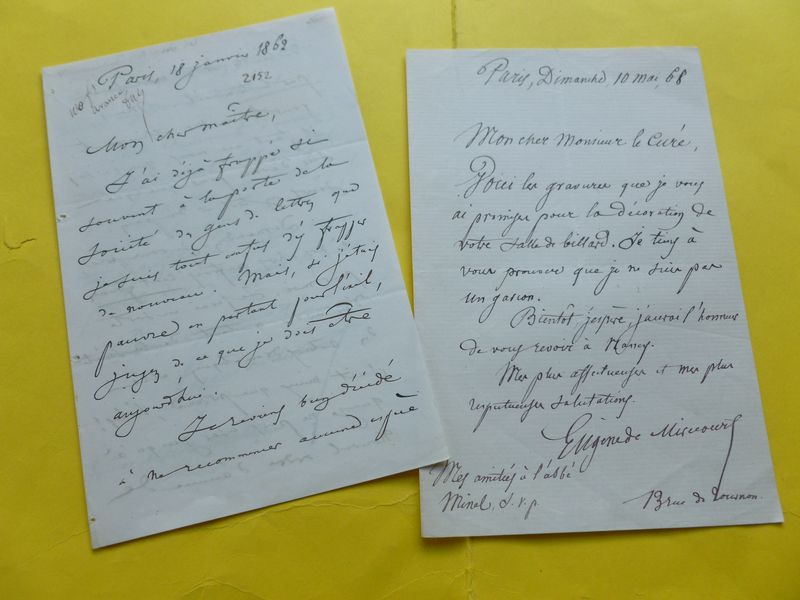 Paris, 18 janvier 1862
2152
100 f
avance
Day
Mon cher maître,
J'ai déjà frappé si
souvent à la porte de la
société des gens de lettres que
je suis tout confus d'y frapper
de nouveau. Mais, si j'étais
pauvre en partant pour l'exil,
jugez de ce que je dois être
aujourd'hui.
Je reviens bien décidé
à ne recommencer aucune espèce
Paris, Dimanche 10 mai, 68
Mon cher Monsieur le Curé,
Voici les gravures que je vous
ai promises pour la décoration de
votre salle de billard. Je tiens à
vous prouver que je ne suis pas
un gascon.
Bientôt, j'espère, j'aurai l'honneur
de vous revoir à Nancy.
Mes plus affectueuses et mes plus
respectueuses salutations.
Eugène de Mirecourt
Mes amitiés à l'abbé
Minel, s.v.p.
8 rue de Tournon.